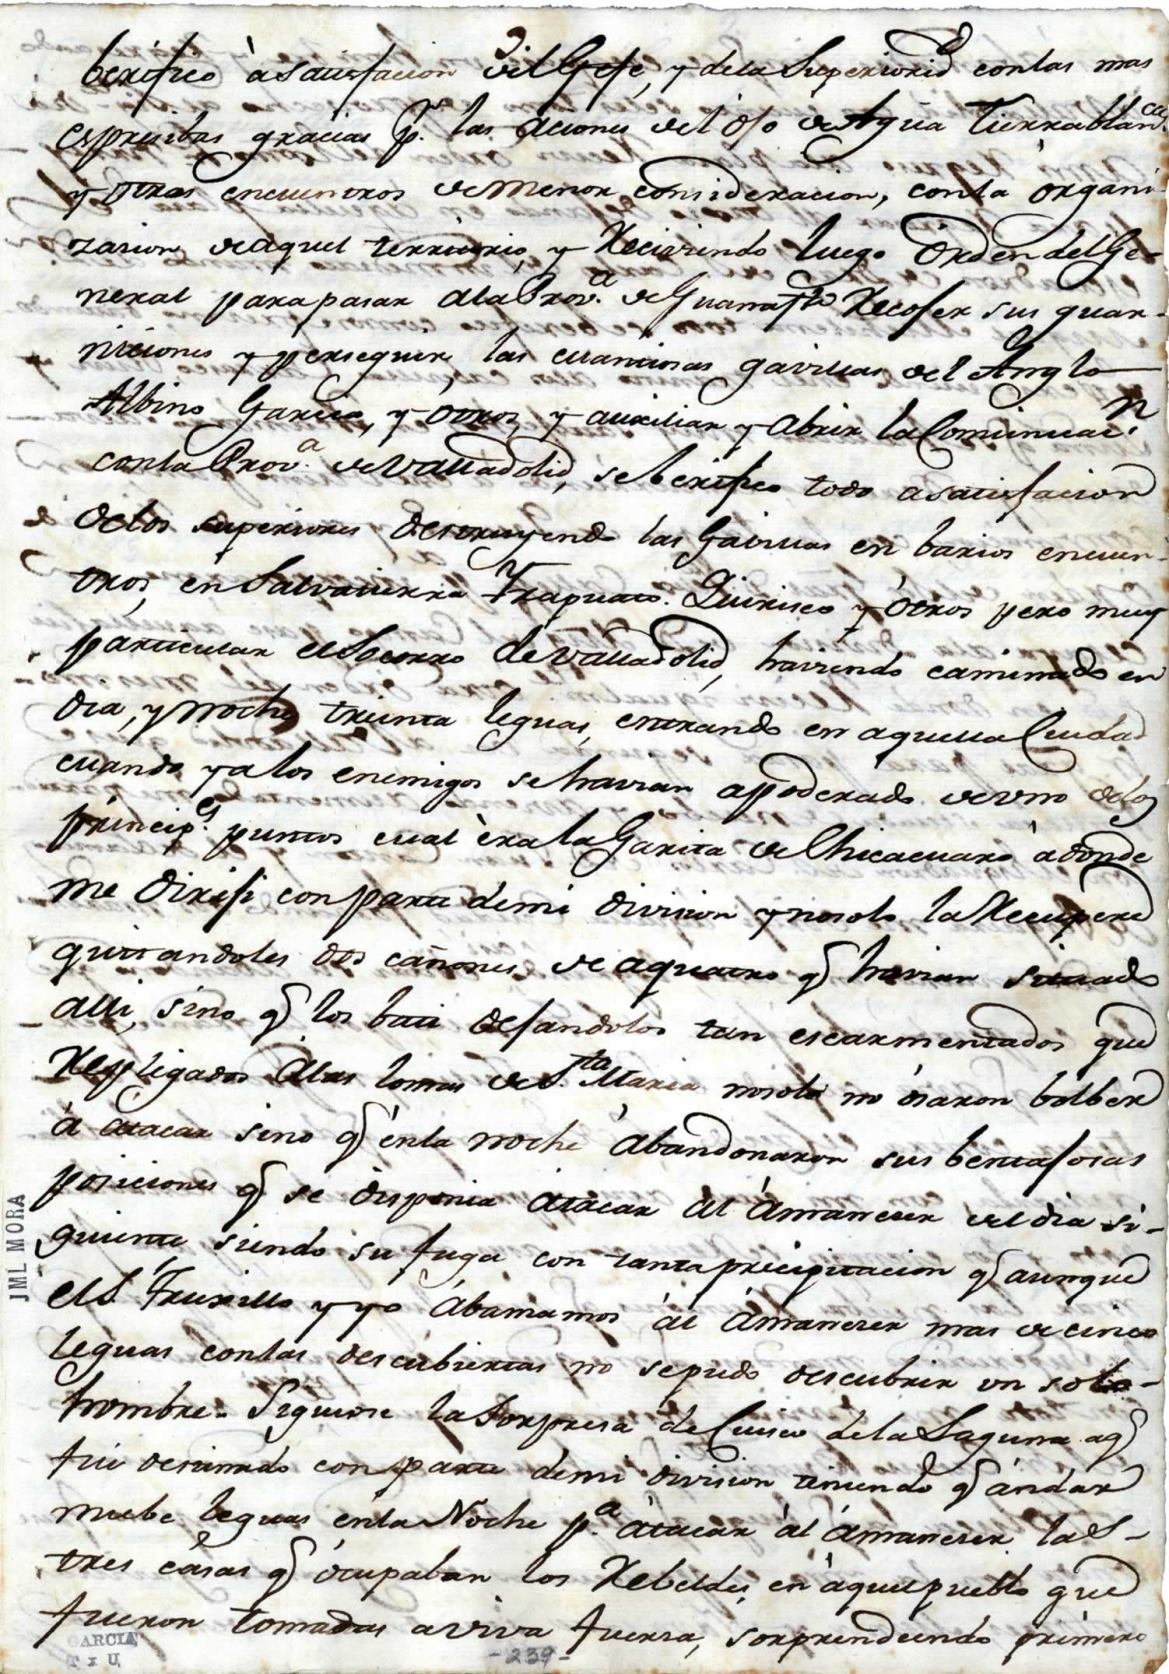 berifico à satisfacion del Gefe, y dela Superiorid.d conlas mas
espresibas gracias p.r las aciones del ôjo de Agua Tierrablanca,
y otros encuentros de menor consideracion, conla organi-
zasion de aquel territorio, y Reciviendo luego Orden del Ge-
neral para pasar ala Prov.a de Guanaj.to Recojer sus guar-
niciones y perseguir, las cuantiosas gavillas del Anglo
Albino Garcia, y otros, y auxiliar y Abrir la Comunicac.n
conla Prov.a de Valladolid, se berifico todo a satisfacion
delos superiores destruyendo las Gavillas en barios encuen-
tros, en Salvatierra Yrapuato. Quiriseo y ôtros pero muy
particular el Socorro de Valladolid, haviendo caminado en
dia, y noche treinta leguas, entrando en aquella Ciudad
cuando ya los enemigos se havian appoderado de vno delos
princip.es puntos cual èra la Garita de Chicacuaro àdonde
me dirijí con parte demi division y nosolo la Recuperé
quittandoles dos cañones de aquatro q.e havian situado
alli, sino q.e los bati dejandolos tan escarmentados que
Replegados àlas lomas de S.ta Maria nosolo no òsaron bolber
à atacar sino q.e ènla noche àbandonaron sus bentajosas
posiciones q.e se disponia atacar àl àmanecer del dia si-
guiente siendo su fuga con tanta precipitacion q.e aunque
el S.r Truxillo y yo àbamzamos àl àmanecer mas de cinco
leguas conlas descubiertas no sepudo descubrir un solo-
hombre. Siguiose la Sorpresa de Cuiseo dela Laguna aq.e
fui destinado con parte demi division teniendo q.e àndar
nuebe leguas ènla Noche p.a àtacar àl àmanecer las-
tres casas q.e òcupaban los Rebeldes, en àquel pueblo que
fueron tomadas a viva fuersa, sorprendiendo primero
JML MORA
GARCIA
-239-